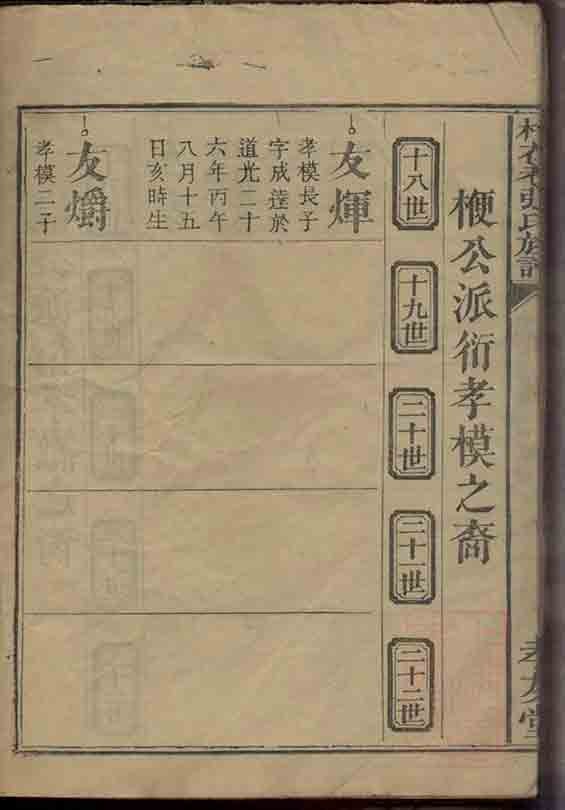 張氏族譜
孝友堂
楩公派衍孝模之裔
十八世
十九世
二十世
二十一世
二十二世
友煇
孝模長子
字成逹於
道光二十
六年丙午
八月十五
日亥時生
友爝
孝模二子